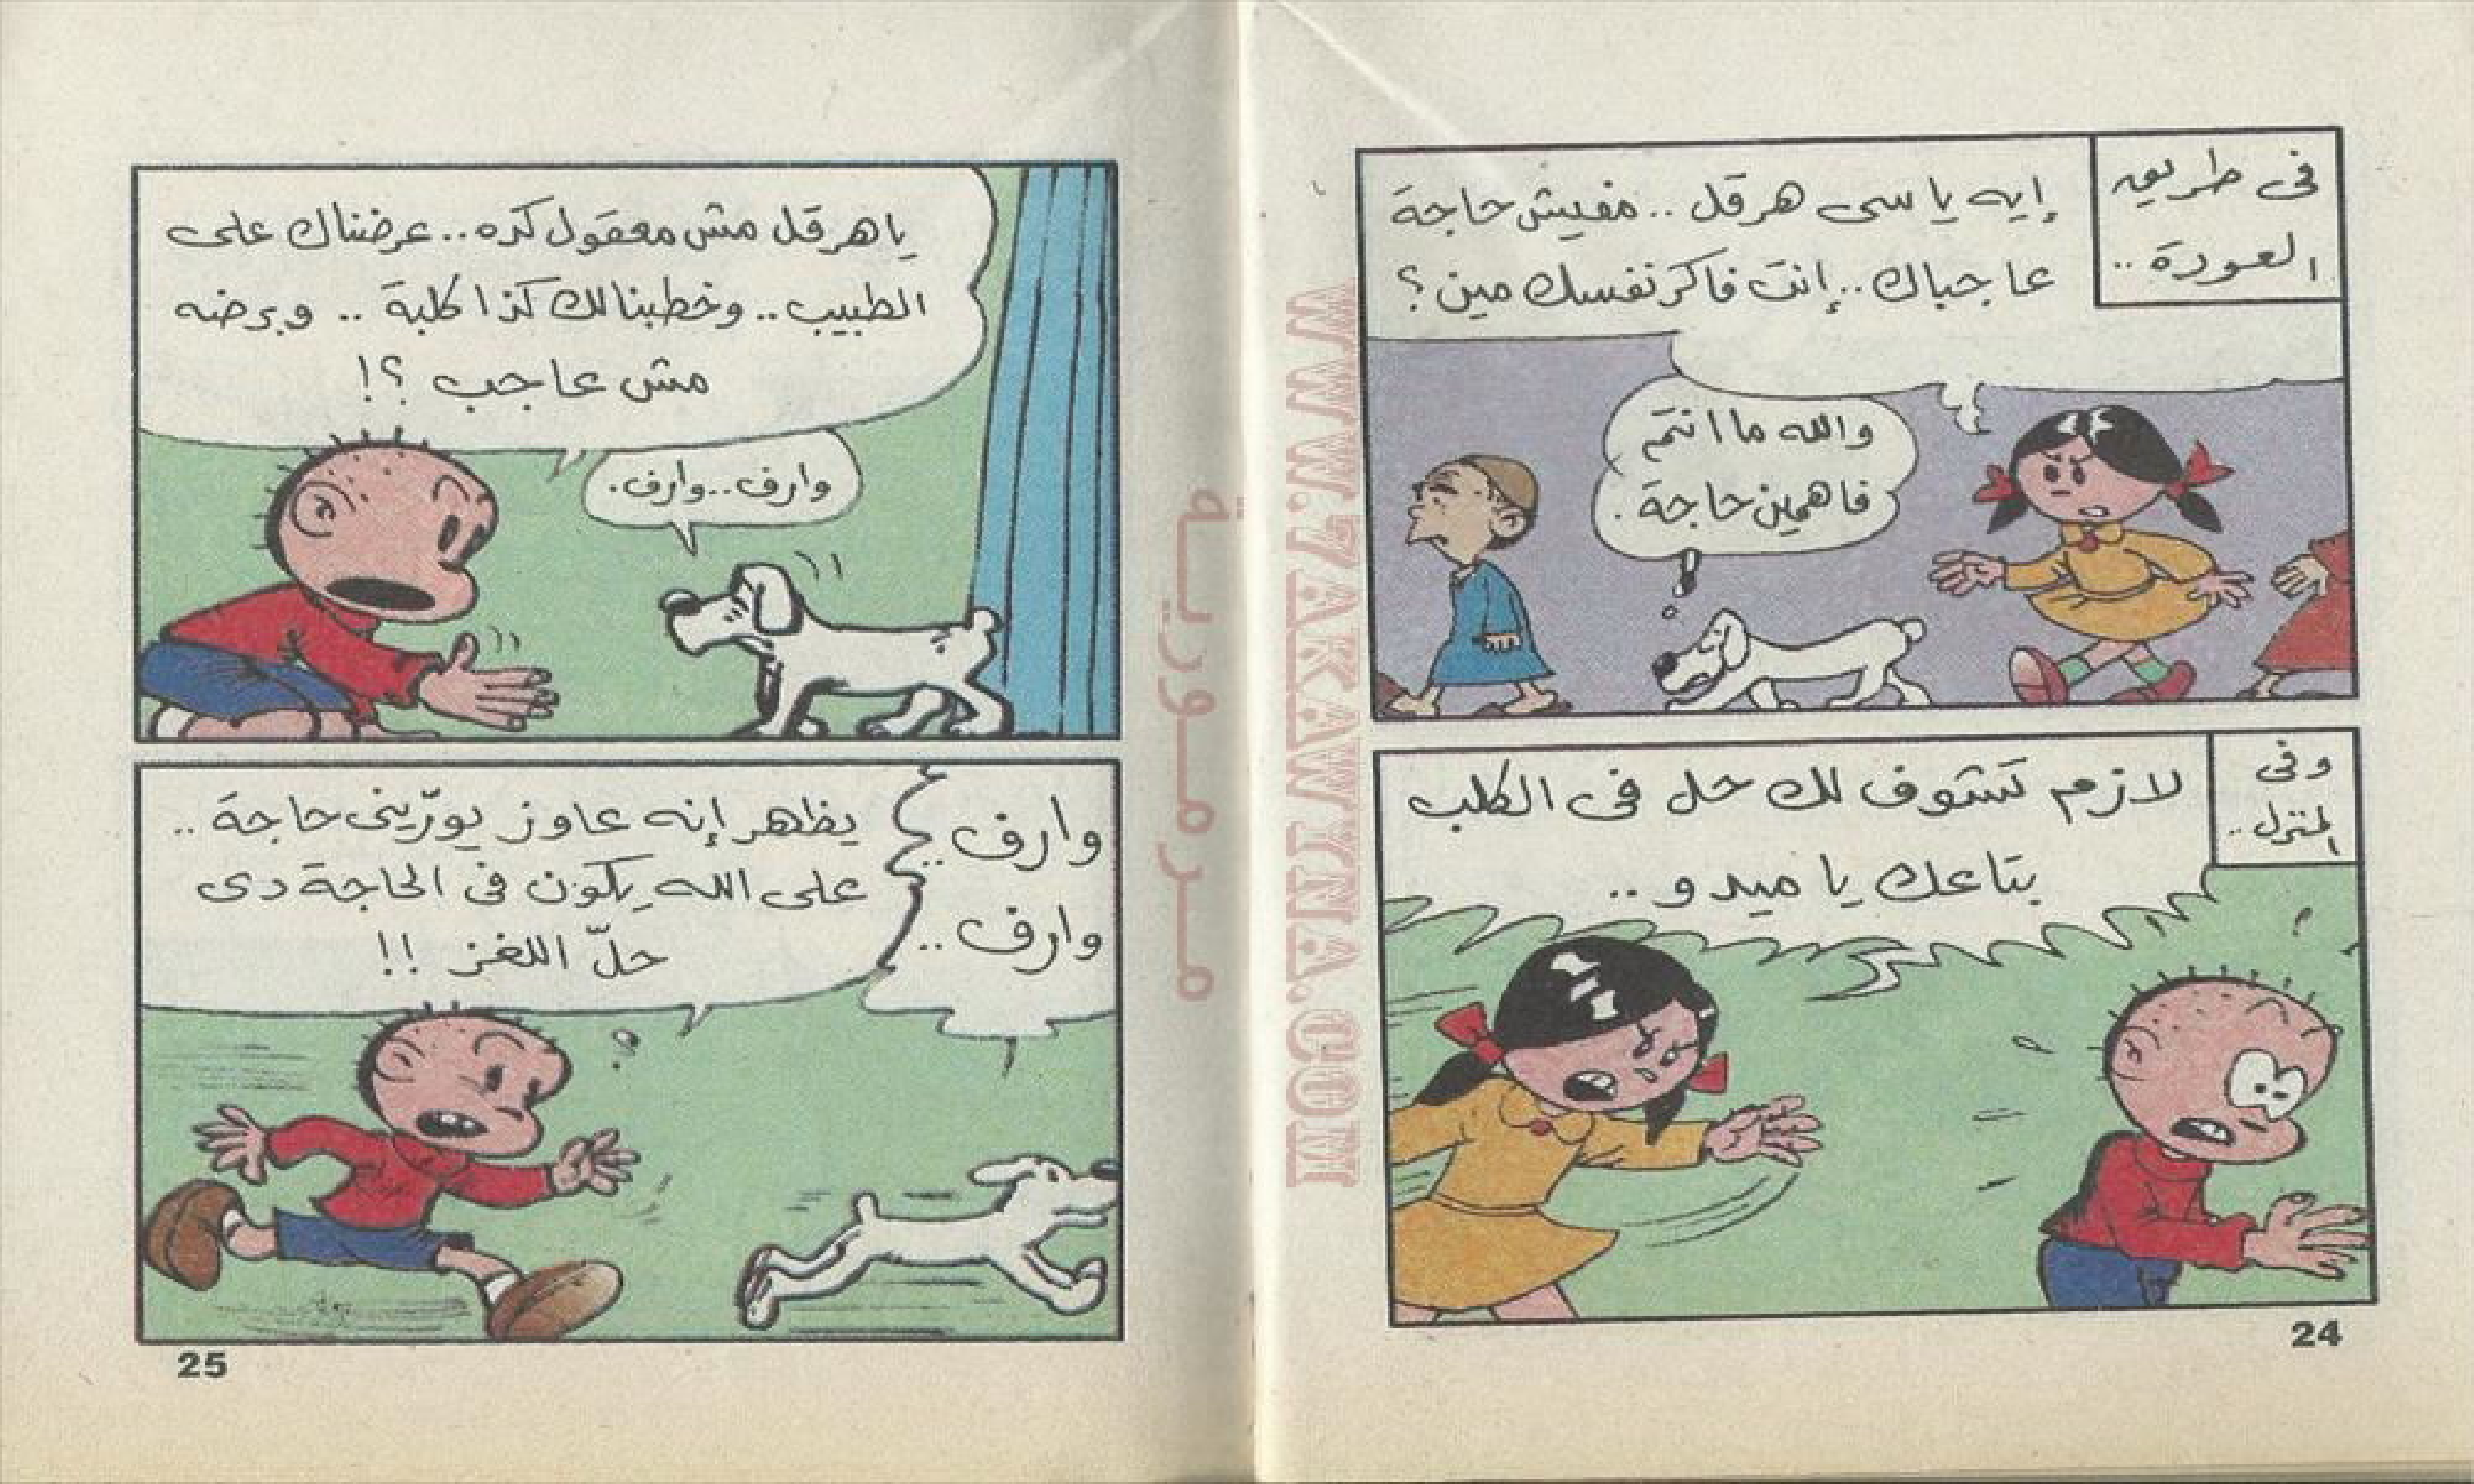 فى طريق
العودة ..
إيه يا سى هرقل .. مفيش حاجة
عاجباك .. إنت فاكر نفسك مين ؟
والله ما انتم
فاهمين حاجة .
وفى
المنزل ..
لازم تشوف لك حل فى الكلب
بتاعك يا ميدو ..
24
يا هرقل مش معقول كده .. عرضناك على
الطبيب .. وخطبنالك كذا كلبة .. وبرضه
مش عاجب ؟!
وارف .. وارف .
وارف ..
وارف ..
يظهر إنه عاوز يورّينى حاجة ..
على الله يكون فى الحاجة دى
حلّ اللغز !!
25
مرمورية
WWW.7AKAWYNA.COM